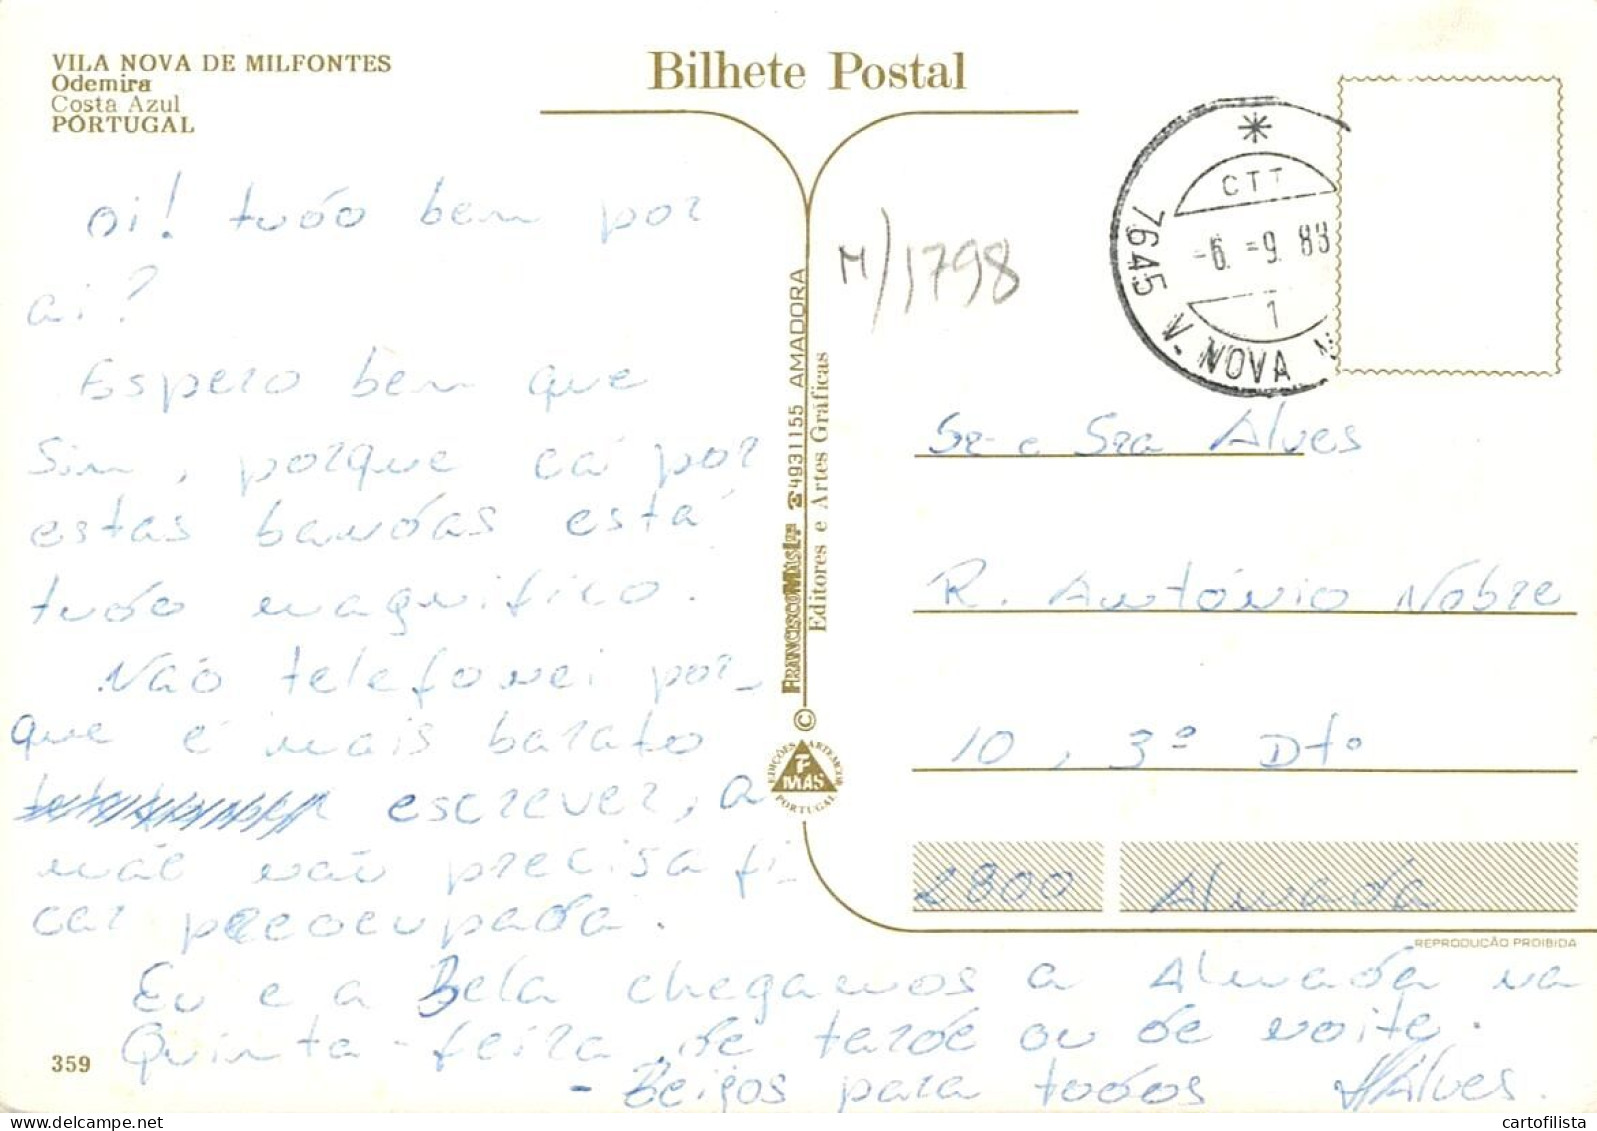 VILA NOVA DE MILFONTES
Odemira
Costa Azul
PORTUGAL
Bilhete Postal
CTT
-6. =9. 83
1
7645 V. NOVA
M/1798
oi! tudo bem por
ai?
Espero bem que
sim, porque cá por
estas bandas está
tudo magnifico.
Não telefonei por-
que é mais barato
escrever, a
mãe não precisa fi-
car preocupada.
Eu e a Bela chegamos a Almada na
Quinta-feira de tarde ou de noite.
- Beijos para todos
Alves.
Sr e Sra Alves
R. António Nobre
10, 3º Dto
2800 Almada
REPRODUÇÃO PROIBIDA
© FRANCISCO MAS LDA ☎4931155 AMADORA
Editores e Artes Gráficas
EDIÇÕES ARTEMCOR
F
MAS
PORTUGAL
359
cartofilista